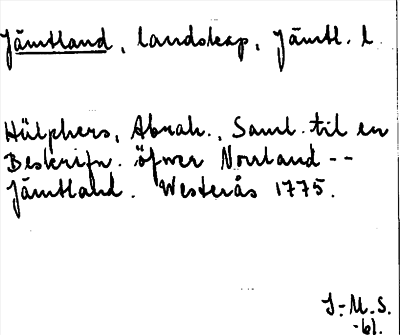 Jämtland, landskap, Jämtl. l.
Hülphers, Abrah., Saml. til en
Beskrifn. öfwer Norrland --
Jämtland. Westerås 1775.
J.-M.S.
-61.